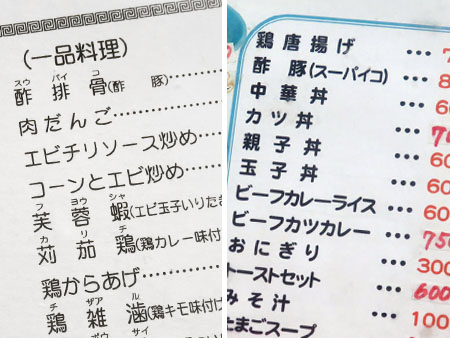 (一品料理)
スウ パイ コ
酢排骨(酢 豚)………
肉だんご………
エビチリソース炒め…
コーンとエビ炒め……
フ ヨウ シャ
芙蓉蝦(エビ玉子いりたき
カ リ チ
苅茄鶏(鶏カレー味付
鶏からあげ………
チ ザア ル
鶏雑滷(鶏キモ味付け
鶏唐揚げ … 7
酢豚(スーパイコ) … 8
中華丼 … 60
カツ丼 … 70
親子丼 … 600
玉子丼 … 600
ビーフカレーライス … 600
ビーフカツカレー … 750
おにぎり … 300
トーストセット … 600
みそ汁 … 100
たまごスープ